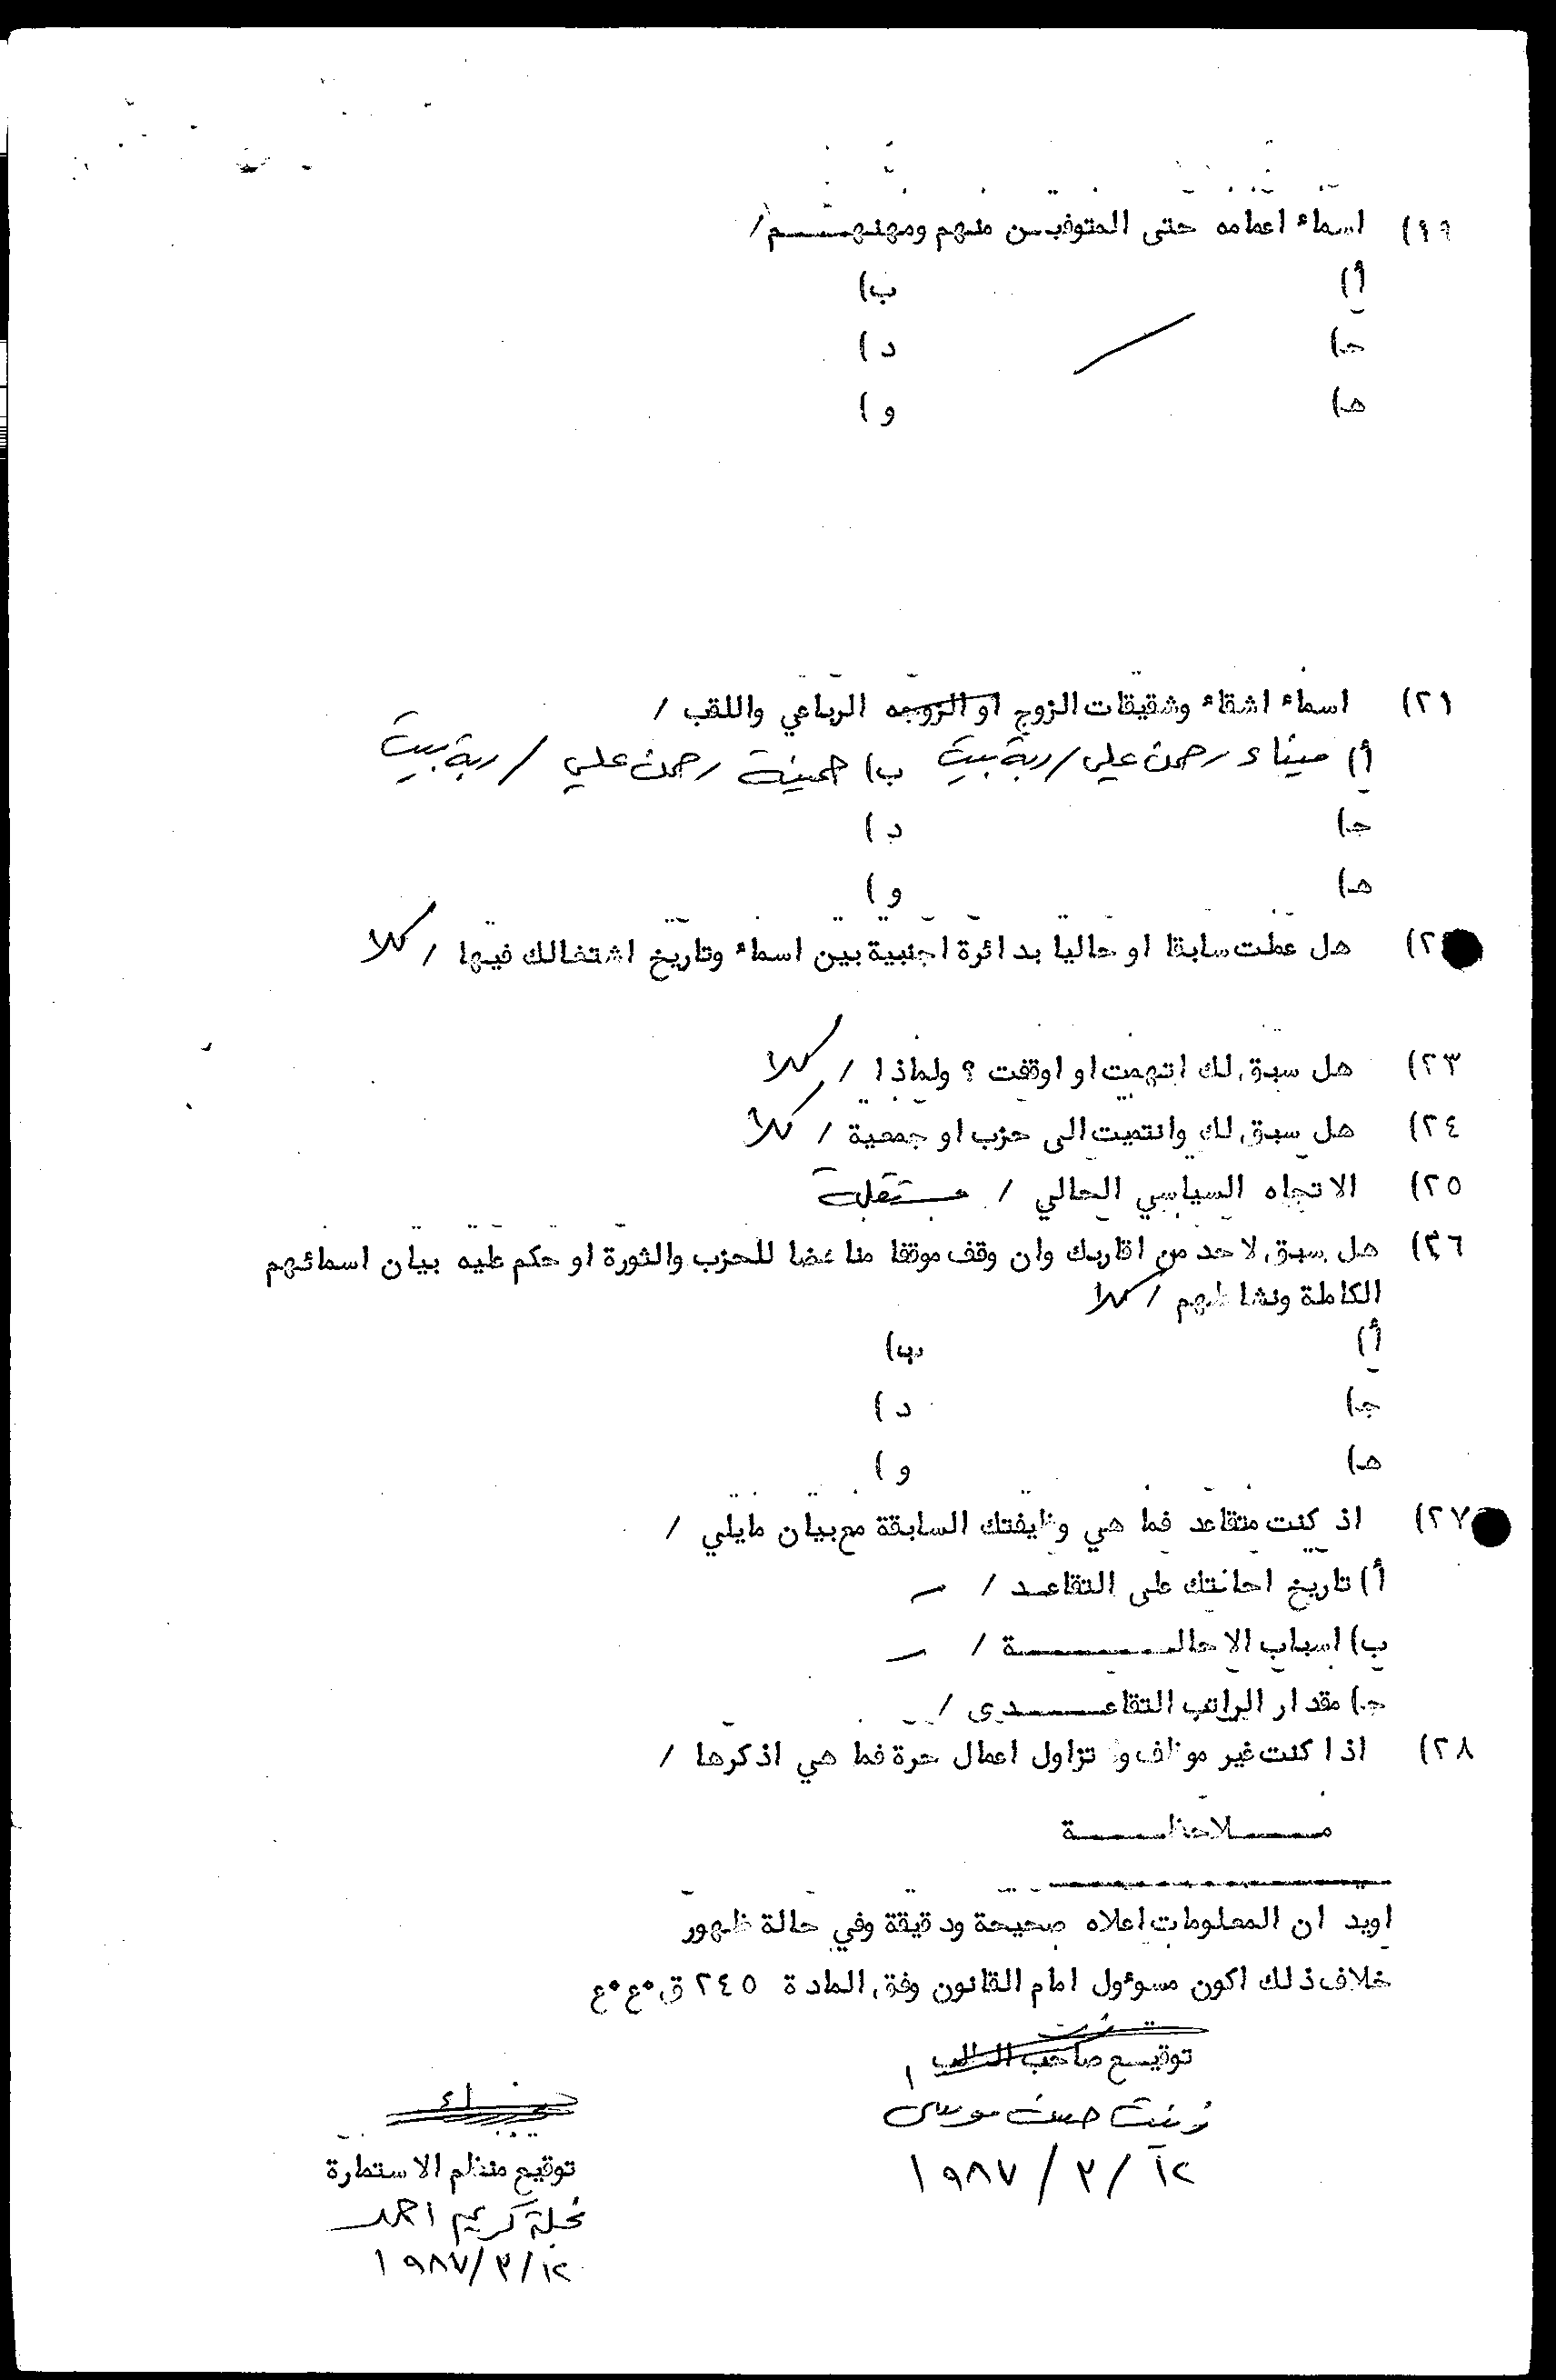 ١٩) اسماء اعمامه حتى المتوفيـن منهم ومهنهـــم /
أ) ب)
جـ) د)
هـ) و)
٢١) اسماء اشقاء وشقيقات الزوج او الزوجه الرباعي واللقب /
أ) ميناء رحمن علي / ربة بيت ب) حمينة رحمن علي / ربة بيت
جـ) د)
هـ) و)
٢٢) هل عملت سابقا او حاليا بدائرة اجنبية بين اسماء وتاريخ اشتغالك فيها / كلا
٢٣) هل سبق لك اتهمت او اوقفت ؟ ولماذا / كلا
٢٤) هل سبق لك وانتميت الى حزب او جمعية / كلا
٢٥) الاتجاه السياسي الحالي / مستقلة
٢٦) هل سبق لاحد من اقاربك وان وقف موقفا مناهضا للحزب والثورة او حكم عليه بيان اسمائهم
الكاملة ونشاطهم / كلا
أ) ب)
جـ) د)
هـ) و)
٢٧) اذ كنت متقاعد فما هي وظيفتك السابقة مع بيان مايلي /
أ) تاريخ احالتك على التقاعـد / –
ب) اسباب الاحالـــــــة / –
جـ) مقدار الراتب التقاعــــدى /
٢٨) اذا كنت غير موظف و تزاول اعمال حرة فما هي اذكرها /
مــــلاحظــــة
اويد ان المعلومات اعلاه صحيحة ودقيقة وفي حالة ظهور
خلاف ذلك اكون مسوءول امام القانون وفق المادة ٢٤٥ ق٠ع٠ع
توقيـع صاحب الطلب
زينت حسن موسى
١٢ / ٣ / ١٩٨٧
توقيع منظم الاستمارة
نجلة كريم احمد
١٢/٣/١٩٨٧